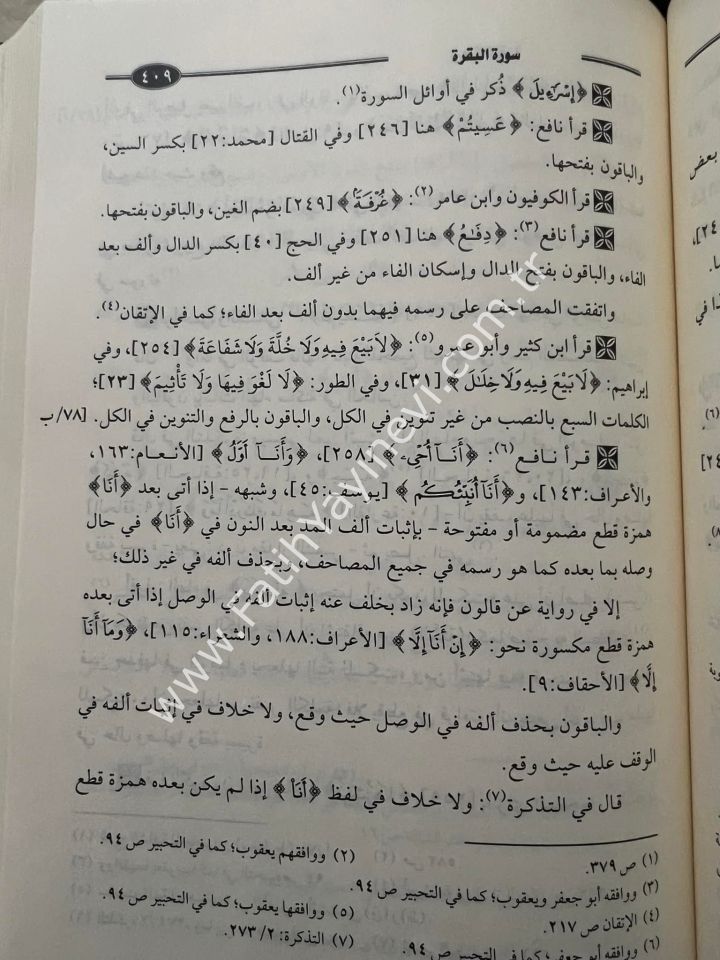 سورة البقرة
٤٠٩
﴿إِسْرَٰٓءِيلَ﴾ ذُكر في أوائل السورة(١).
قرأ نافع: ﴿عَسِيتُمْ﴾ هنا [٢٤٦] وفي القتال [محمد:٢٢] بكسر السين،
والباقون بفتحها.
قرأ الكوفيون وابن عامر(٢): ﴿غُرْفَةً﴾ [٢٤٩] بضم الغين، والباقون بفتحها.
قرأ نافع(٣): ﴿دِفَٰعُ﴾ هنا [٢٥١] وفي الحج [٤٠] بكسر الدال وألف بعد
الفاء، والباقون بفتح الدال وإسكان الفاء من غير ألف.
واتفقت المصاحف على رسمه فيهما بدون ألف بعد الفاء؛ كما في الإتقان(٤).
قرأ ابن كثير وأبو عمرو(٥): ﴿لَا بَيْعَ فِيهِ وَلَا خُلَّةَ وَلَا شَفَاعَةَ﴾ [٢٥٤]، وفي
إبراهيم: ﴿لَا بَيْعَ فِيهِ وَلَا خِلَٰلَ﴾ [٣١]، وفي الطور: ﴿لَا لَغْوَ فِيهَا وَلَا تَأْثِيمَ﴾ [٢٣]؛
الكلمات السبع بالنصب من غير تنوين في الكل، والباقون بالرفع والتنوين في الكل. [٧٨/ب
قرأ نافع(٦): ﴿أَنَآ أُحْىِۦ﴾ [٢٥٨]، ﴿وَأَنَآ أَوَّلُ﴾ [الأنعام:١٦٣،
والأعراف:١٤٣]، و﴿أَنَآ أُنَبِّئُكُم﴾ [يوسف:٤٥]، وشبهه - إذا أتى بعد ﴿أَنَا﴾
همزة قطع مضمومة أو مفتوحة - بإثبات ألف المد بعد النون في ﴿أَنَا﴾ في حال
وصله بما بعده كما هو رسمه في جميع المصاحف، وبحذف ألفه في غير ذلك؛
إلا في رواية عن قالون فإنه زاد بخلف عنه إثبات ألفه في الوصل إذا أتى بعده
همزة قطع مكسورة نحو: ﴿إِنْ أَنَا۠ إِلَّا﴾ [الأعراف:١٨٨، والشعراء:١١٥]، ﴿وَمَآ أَنَا۠
إِلَّا﴾ [الأحقاف:٩].
والباقون بحذف ألفه في الوصل حيث وقع، ولا خلاف في إثبات ألفه في
الوقف عليه حيث وقع.
قال في التذكرة(٧): ولا خلاف في لفظ ﴿أَنَا۠﴾ إذا لم يكن بعده همزة قطع
(١) ص ٣٧٩.
(٢) ووافقهم يعقوب؛ كما في التحبير ص ٩٤.
(٣) ووافقه أبو جعفر ويعقوب؛ كما في التحبير ص ٩٤.
(٤) الإتقان ص ٢١٧.
(٥) ووافقها يعقوب؛ كما في التحبير ص ٩٤.
(٦) ووافقه أبو جعفر؛ كما في التحبير ص ٩٤.
(٧) التذكرة: ٢/ ٢٧٣.
www.FatihYayinevi.com.tr